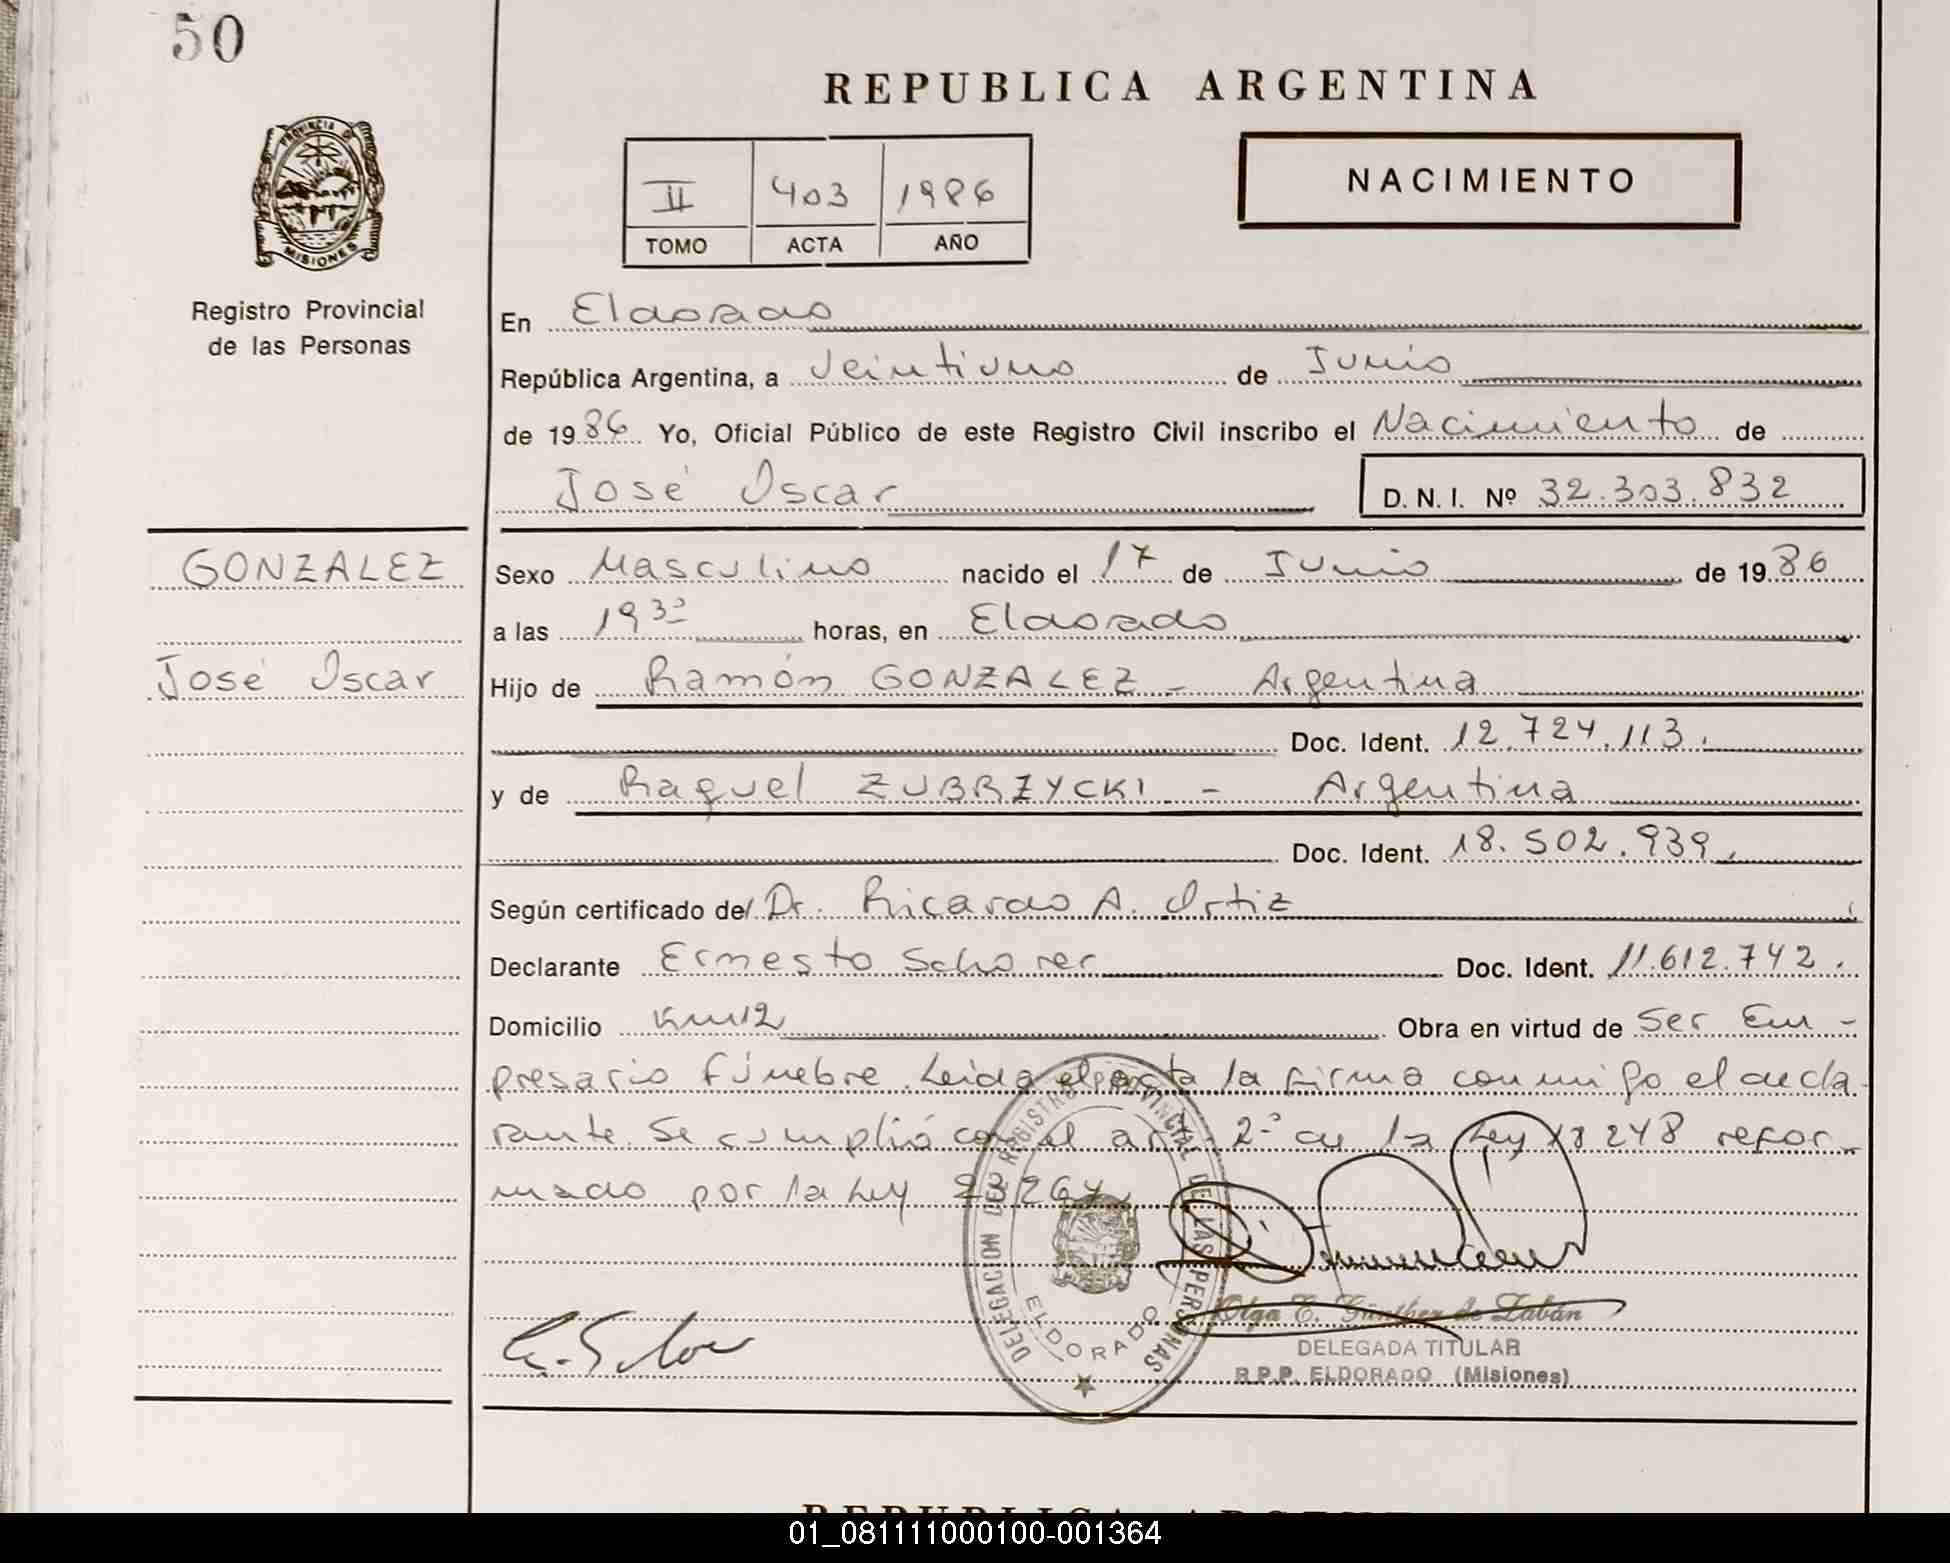 50
REPUBLICA ARGENTINA
PROVINCIA D MISIONES
II 403 1986
TOMO ACTA AÑO
NACIMIENTO
Registro Provincial
de las Personas
En Eldorado
República Argentina, a Veintiuno de Junio
de 1986 Yo, Oficial Público de este Registro Civil inscribo el Nacimiento de
José Oscar D. N. I. Nº 32.303.832
GONZALEZ
José Oscar
Sexo Masculino nacido el 17 de Junio de 1986
a las 19 30 horas, en Eldorado
Hijo de Ramón GONZALEZ - Argentina
Doc. Ident. 12.724.113.
y de Raquel ZUBRZYCKI - Argentina
Doc. Ident. 18.502.939.
Según certificado del Dr. Ricardo A. Ortiz
Declarante Ernesto Schorer Doc. Ident. 11.612.742.
Domicilio Km12 Obra en virtud de Ser Em-
presario Fúnebre. Leida el acta la firma conmigo el decla-
rante. Se cumplió con el art. 2º de la Ley 18248 refor-
mado por la Ley 23264.
DELEGACION DEL REGISTRO PROVINCIAL DE LAS PERSONAS
ELDORADO
Olga E. Günther de Zabán
DELEGADA TITULAR
R.P.P. ELDORADO (Misiones)
REPUBLICA ARGENTINA
01_081111000100-001364